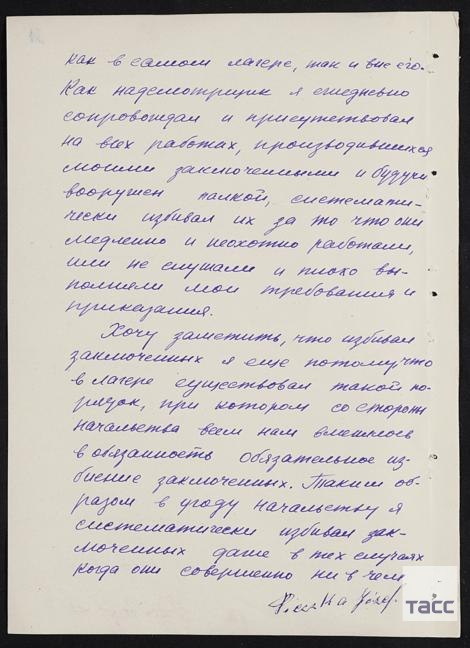 как в самом лагере, так и вне его.
Как надсмотрщик я ежедневно
сопровождал и присутствовал
на всех работах, производившихся
моими заключенными и будучи
вооружен палкой, системати-
чески избивал их за то что они
медленно и неохотно работали,
или не слушали и плохо вы-
полняли мои требования и
приказания.
Хочу заметить, что избивал
заключенных я еще потому, что
в лагере существовал такой по-
рядок, при котором со стороны
начальства всем нам вменялось
в обязанность обязательное из-
биение заключенных. Таким об-
разом в угоду начальству я
систематически избивал зак-
люченных даже в тех случаях
когда они совершенно ни в чем
ТАСС